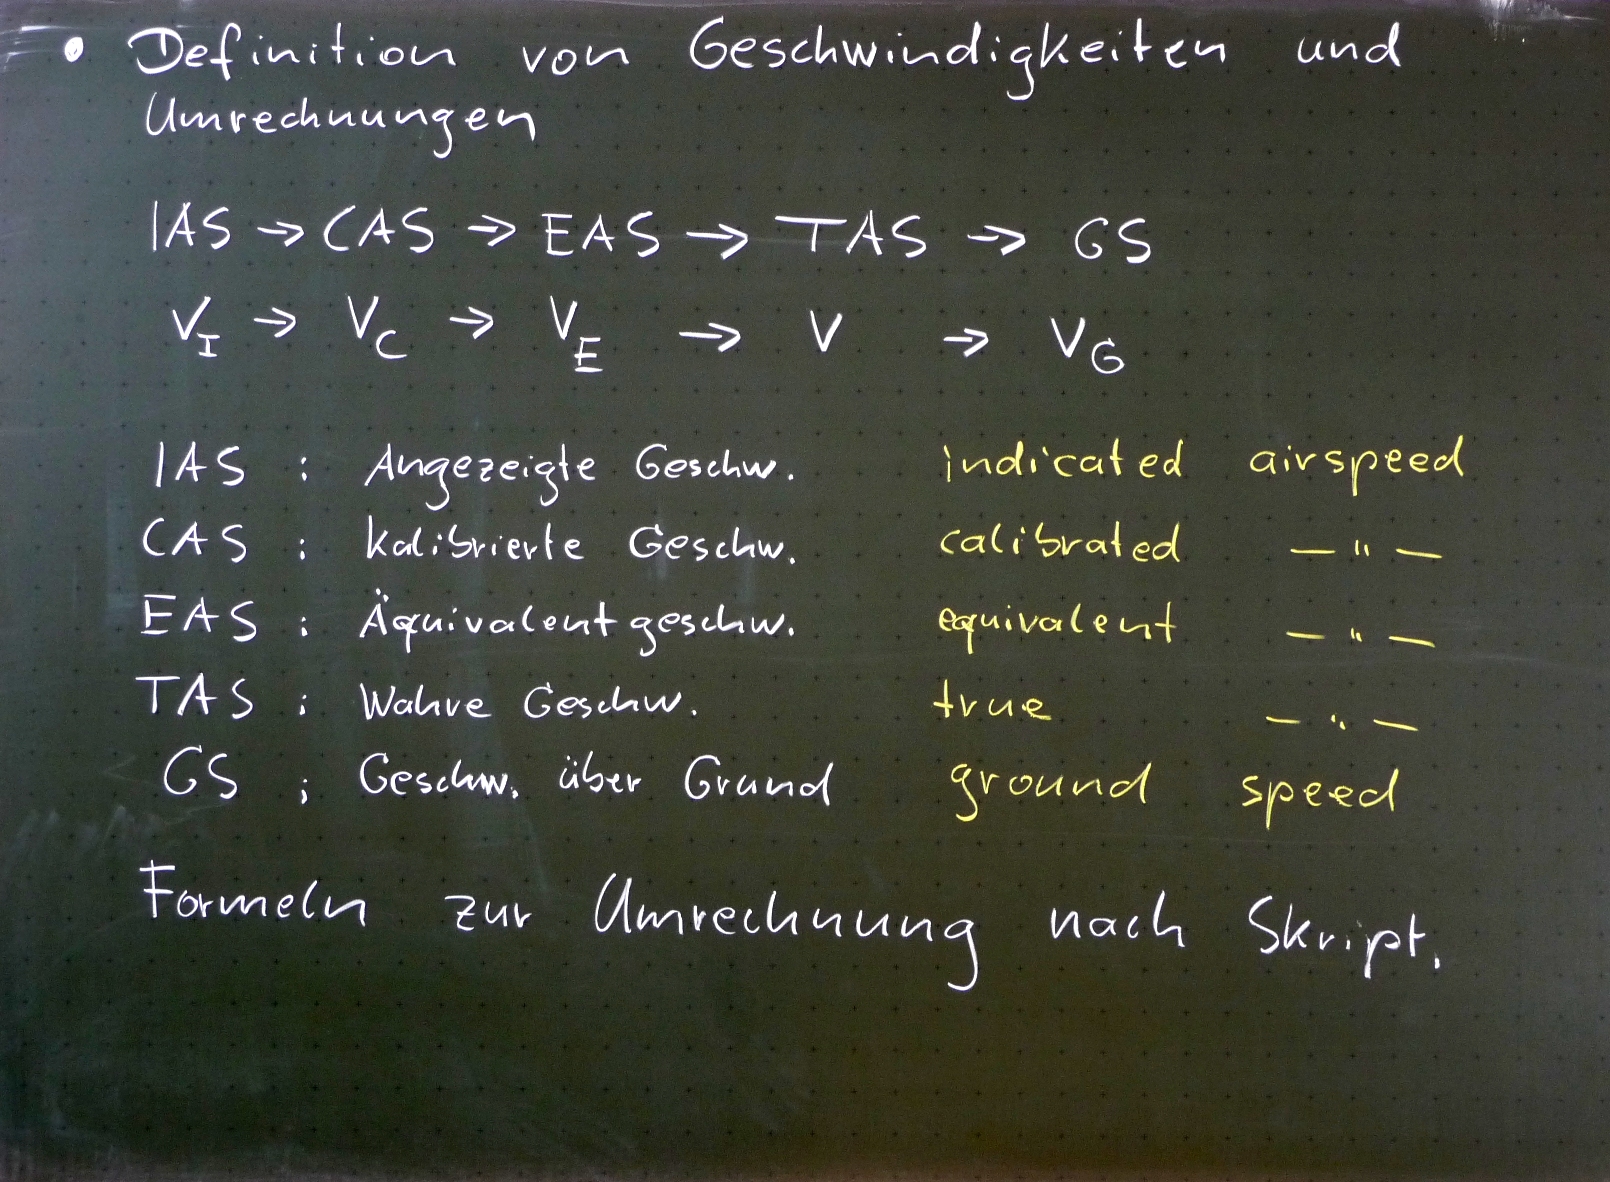 • Definition von Geschwindigkeiten und
Umrechnungen
IAS → CAS → EAS → TAS → GS
V_I → V_C → V_E → V → V_G
IAS : Angezeigte Geschw. indicated airspeed
CAS : kalibrierte Geschw. calibrated — " —
EAS : Äquivalentgeschw. equivalent — " —
TAS : Wahre Geschw. true — " —
GS : Geschw. über Grund ground speed
Formeln zur Umrechnung nach Skript.